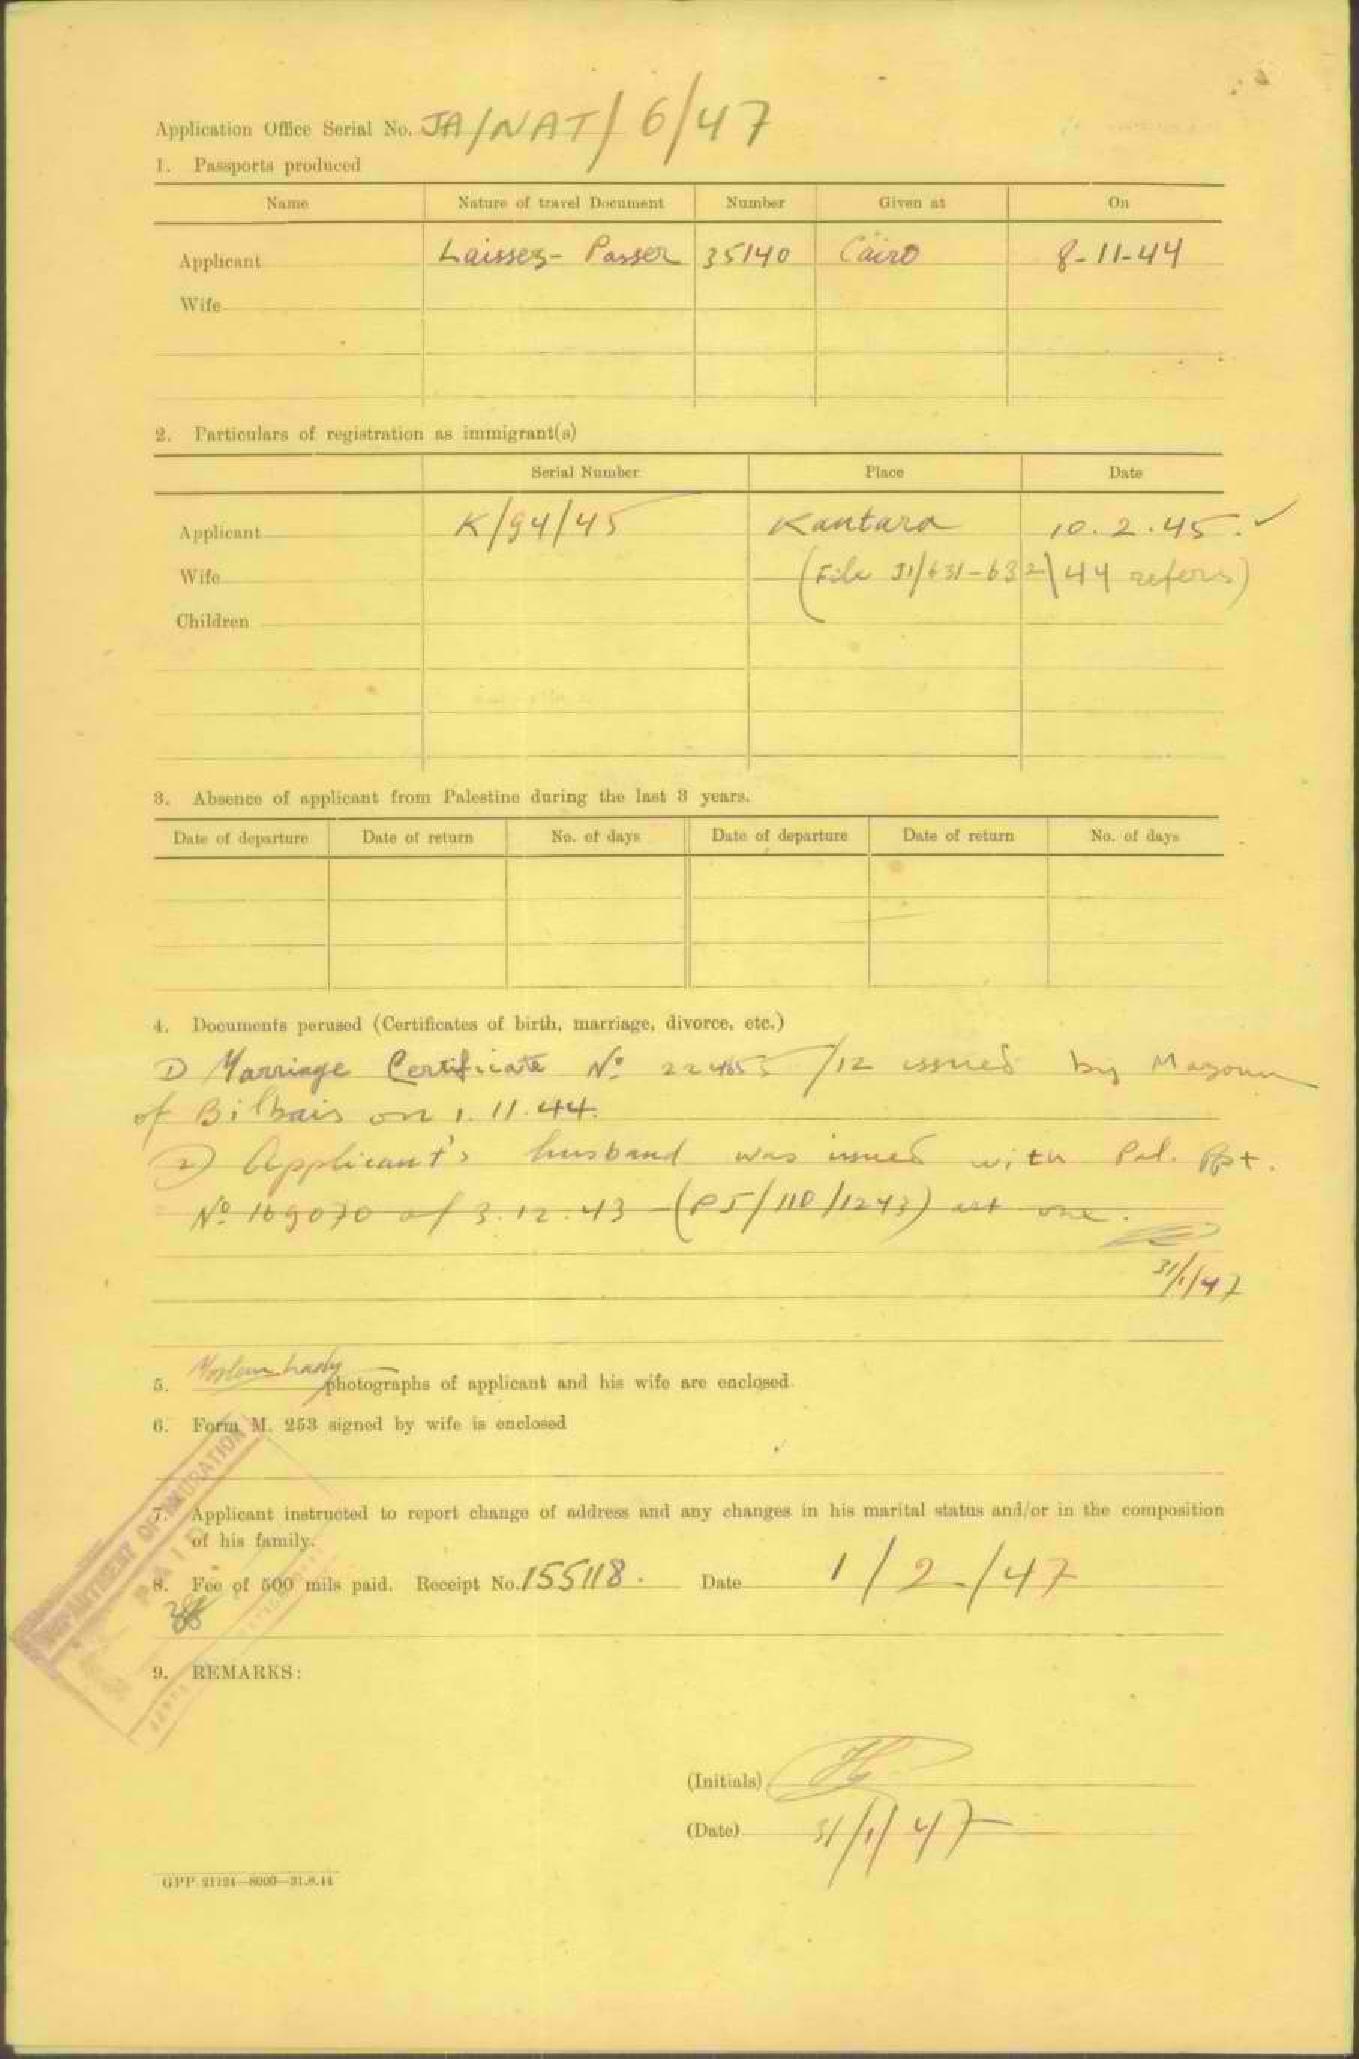 Application Office Serial No. JA/NAT/6/47
1. Passports produced
Name Nature of travel Document Number Given at On
Applicant Laissez-Passer 35140 Cairo 8-11-44
Wife
2. Particulars of registration as immigrant(s)
Serial Number Place Date
Applicant K/94/45 Kantara 10.2.45.
Wife (File J1/631-632/44 refers)
Children
3. Absence of applicant from Palestine during the last 3 years.
Date of departure Date of return No. of days Date of departure Date of return No. of days
4. Documents perused (Certificates of birth, marriage, divorce, etc.)
1) Marriage Certificate No /12 issued by Mazoun
of Bilbais on 1.11.44.
2) Applicant's husband was issued with Pal. Ppt.
No 169070 of 3.12.43 (PS/110/1243) art one.
31/1/47
5. Moslem Lady photographs of applicant and his wife are enclosed.
6. Form M. 253 signed by wife is enclosed
7. Applicant instructed to report change of address and any changes in his marital status and/or in the composition
of his family.
8. Fee of 500 mils paid. Receipt No. 155118. Date 1/2/47
DEPARTMENT OF IMMIGRATION
PAID
9. REMARKS:
(Initials)
(Date) 31/1/47
GPP. 21124—8000—31.8.44